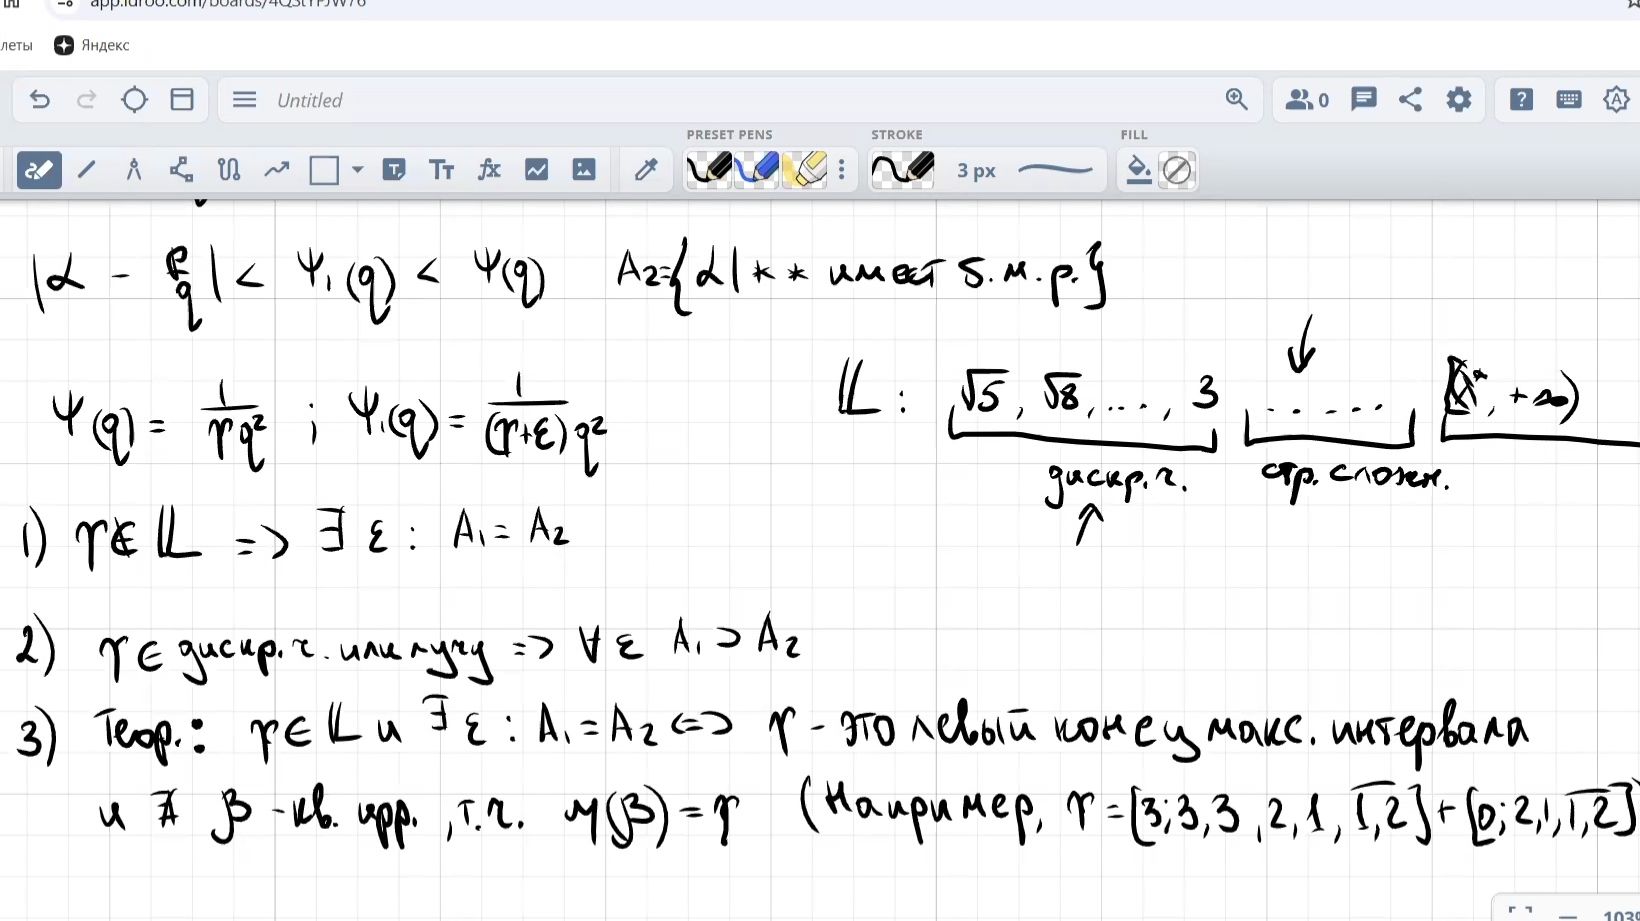 app.idroo.com/boards/4QStYPJW76
леты Яндекс
Untitled
0
PRESET PENS STROKE FILL
3 px
|α - p/q| < Ψ₁(q) < Ψ(q) A₂={α|** имеет б.м.р.}
Ψ(q) = 1/(γq²) ; Ψ₁(q) = 1/((γ+ε)q²)
𝕃 : √5, √8, ..., 3 ...... , +∞)
дискр.ч. стр. сложн.
1) γ∉𝕃 => ∃ ε : A₁ = A₂
2) γ∈ дискр.ч. или лучу => ∀ ε A₁ ⊃ A₂
3) Теор.: γ∈𝕃 и ∃ ε : A₁ = A₂ <=> γ - это левый конец макс. интервала
и ∄ β - кв. ирр., т.ч. μ(β) = γ (Например, γ = [3;3,3,2,1,1̅,̅2̅] + [0;2,1,1̅,̅2̅]
103